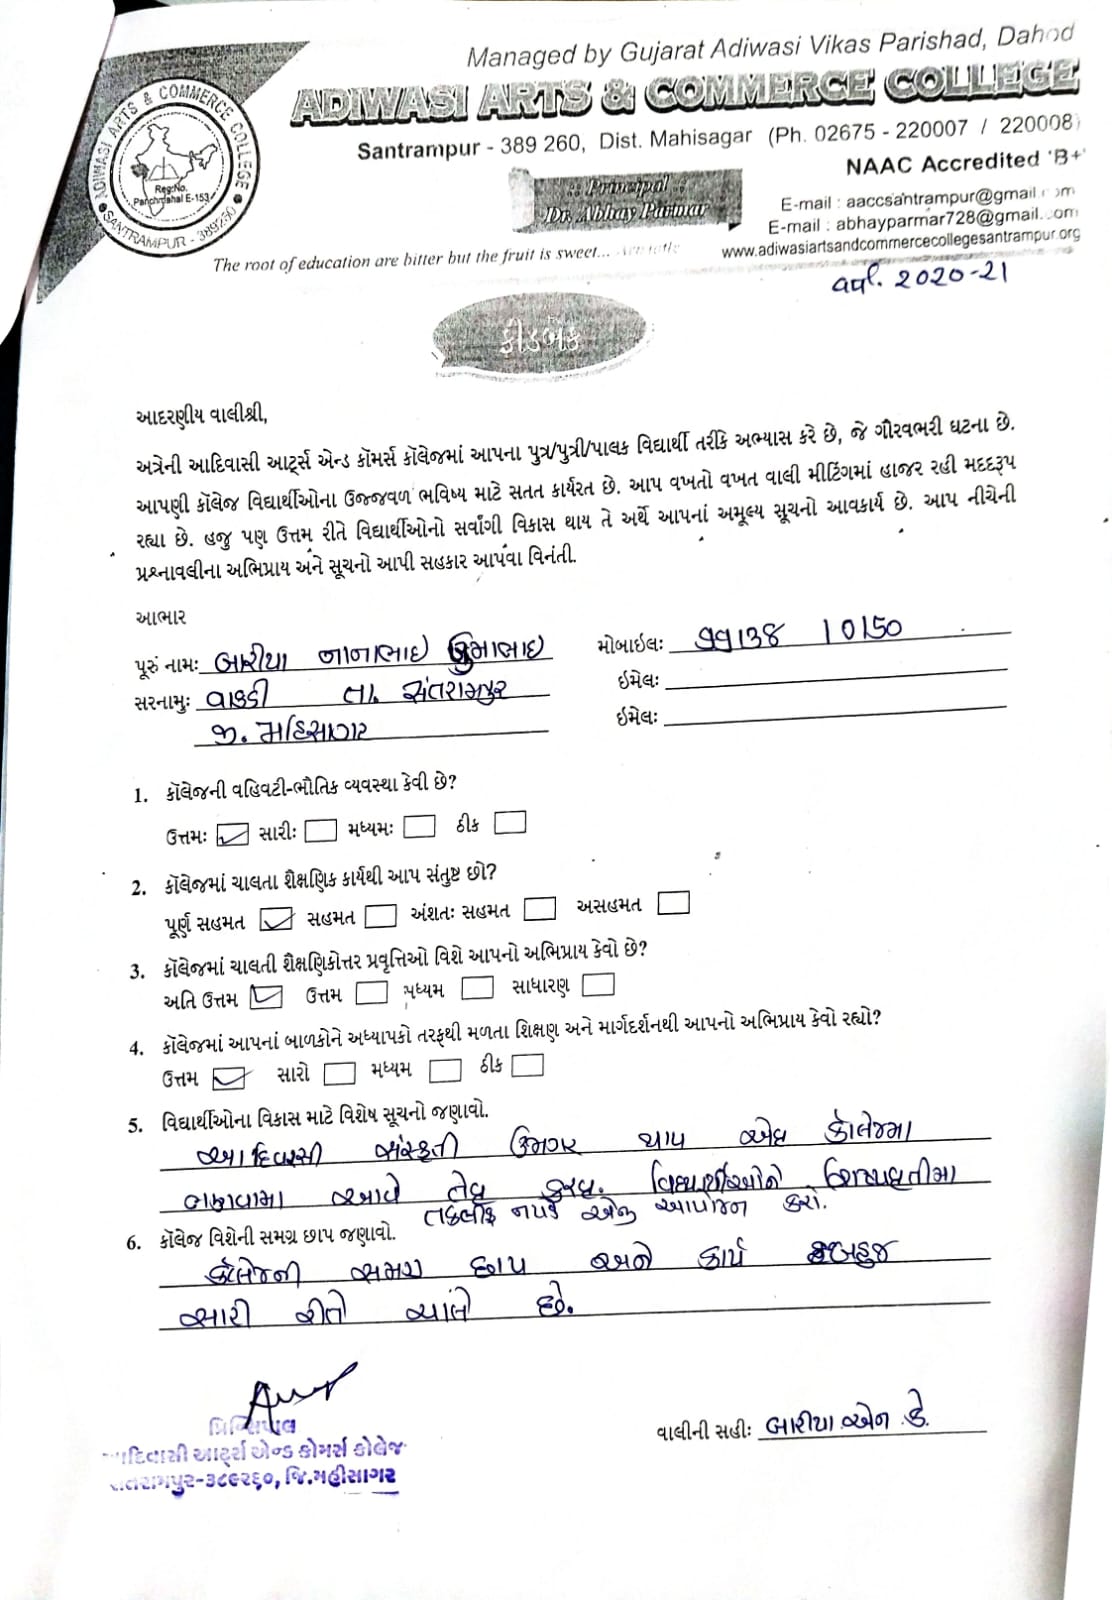 Managed by Gujarat Adiwasi Vikas Parishad, Dahod
ADIWASI ARTS & COMMERCE COLLEGE
Santrampur - 389 260, Dist. Mahisagar (Ph. 02675 - 220007 / 220008)
NAAC Accredited 'B+'
:: Principal ::
Dr. Abhay Parmar
E-mail : aaccsantrampur@gmail.com
E-mail : abhayparmar728@gmail.com
www.adiwasiartsandcommercecollegesantrampur.org
ADIWASI ARTS & COMMERCE COLLEGE
SANTRAMPUR - 389260
Reg.No.
Panchmahal E-153
The root of education are bitter but the fruit is sweet...
વર્ષ. 2020-21
ફીડબેક
આદરણીય વાલીશ્રી,
અત્રેની આદિવાસી આર્ટ્સ એન્ડ કૉમર્સ કૉલેજમાં આપના પુત્ર/પુત્રી/પાલક વિદ્યાર્થી તરીકે અભ્યાસ કરે છે, જે ગૌરવભરી ઘટના છે.
આપણી કૉલેજ વિદ્યાર્થીઓના ઉજ્જવળ ભવિષ્ય માટે સતત કાર્યરત છે. આપ વખતો વખત વાલી મીટિંગમાં હાજર રહી મદદરૂપ
રહ્યા છે. હજુ પણ ઉત્તમ રીતે વિદ્યાર્થીઓનો સર્વાંગી વિકાસ થાય તે અર્થે આપનાં અમૂલ્ય સૂચનો આવકાર્ય છે. આપ નીચેની
પ્રશ્નાવલીના અભિપ્રાય અને સૂચનો આપી સહકાર આપવા વિનંતી.
આભાર
પૂરું નામઃ બારીયા નાનાભાઇ મોબાઇલઃ 99138 10150
સરનામુઃ વાકડી તા. સંતરામપુર ઇમેલઃ
જી. મહિસાગર ઇમેલઃ
1. કૉલેજની વહિવટી-ભૌતિક વ્યવસ્થા કેવી છે?
ઉત્તમઃ સારીઃ મધ્યમઃ ઠીક
2. કૉલેજમાં ચાલતા શૈક્ષણિક કાર્યથી આપ સંતુષ્ટ છો?
પૂર્ણ સહમત સહમત અંશતઃ સહમત અસહમત
3. કૉલેજમાં ચાલતી શૈક્ષણિકોત્તર પ્રવૃત્તિઓ વિશે આપનો અભિપ્રાય કેવો છે?
અતિ ઉત્તમ ઉત્તમ મધ્યમ સાધારણ
4. કૉલેજમાં આપનાં બાળકોને અધ્યાપકો તરફથી મળતા શિક્ષણ અને માર્ગદર્શનથી આપનો અભિપ્રાય કેવો રહ્યો?
ઉત્તમ સારો મધ્યમ ઠીક
5. વિદ્યાર્થીઓના વિકાસ માટે વિશેષ સૂચનો જણાવો.
આદિવાસી સંસ્કૃતી ઉજાગર થાય એવુ કોલેજમા
ભણવામા આવે તેવુ કરવુ. વિદ્યાર્થીઓને શિષ્યવૃતીમા
તકલીફ નપડે એવુ આયોજન કરો.
6. કૉલેજ વિશેની સમગ્ર છાપ જણાવો.
કોલેજની સમગ્ર છાપ અને કાર્ય બહુજ
સારી રીતે ચાલે છે.
પ્રિન્સિપાલ
આદિવાસી આર્ટ્સ એન્ડ કોમર્સ કોલેજ
સંતરામપુર-૩૮૯૨૬૦, જિ.મહીસાગર
વાલીની સહીઃ બારીયા એન ડે.